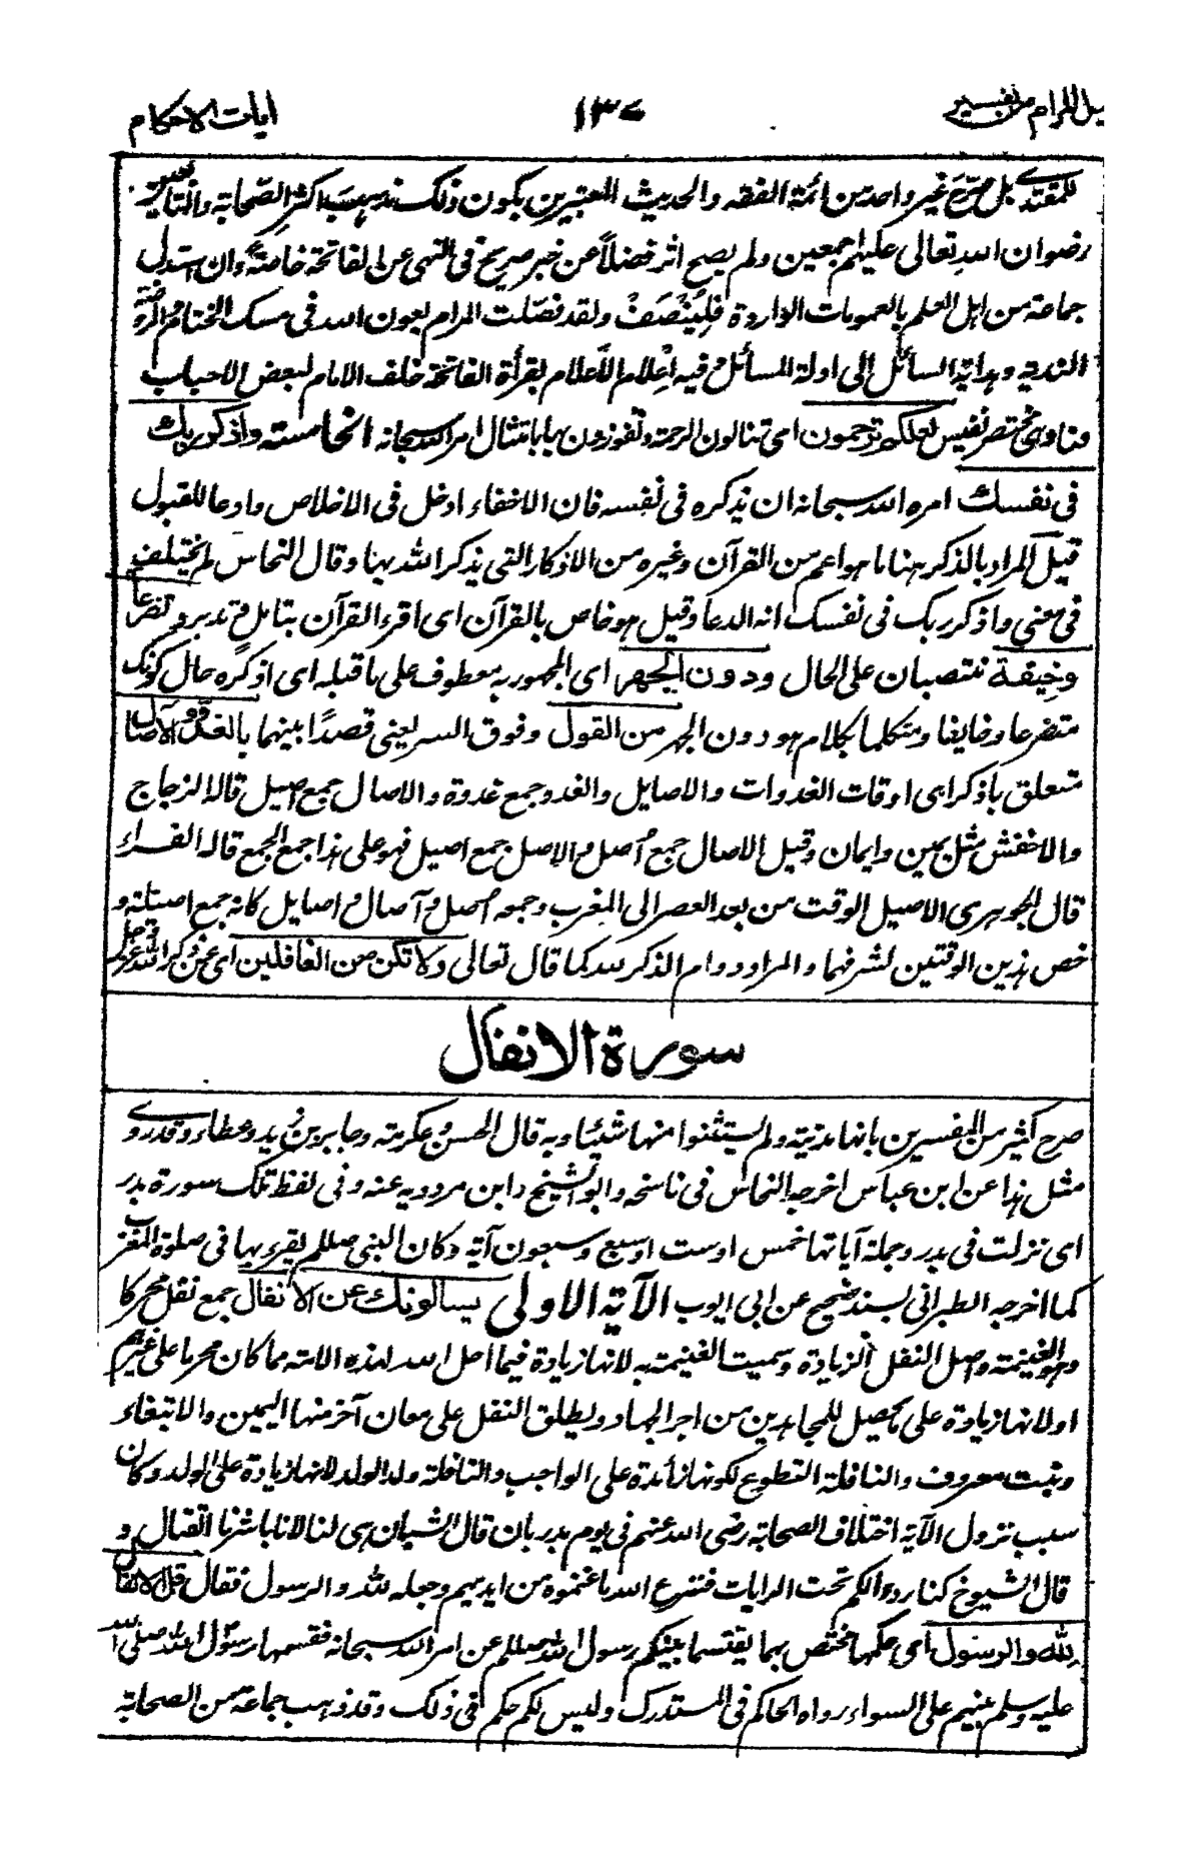 نيل المرام من تفسير ١٣٧ ايات الاحكام
للمقتدي بل صرح غير واحد من ائمة الفقه والحديث المعتبرين بكون ذلك مذهب اكثر الصحابة والتابعين
رضوان الله تعالى عليهم اجمعين ولم يصح اثر فضلاً عن خبر صريح فى النهى عن الفاتحة خاصةً وان استدل
جماعة من اهل العلم بالعمومات الواردة فَلْيُنْصَفْ ولقد فصّلت المرام بعون الله فى مسك الختام والروضة
الندية وهداية السائل الى ادلة المسائل وفيه اِعلام الاَعلام بقرأة الفاتحة خلف الامام لبعض الاحباب
مختصر نفيس لعلكم ترحمون اى تنالون الرحمة وتفوزون بها بامتثال امر الله سبحانه الخامسة واذكر ربك
فى نفسك امره الله سبحانه ان يذكره فى نفسه فان الاخفاء ادخل فى الاخلاص وادعا للقبول
قيل المراد بالذكر هنا ما هو اعم من القرآن وغيره من الاذكار التى يذكر الله بها وقال النحاس لم يختلف
فى معنى واذكر ربك فى نفسك انه الدعا وقيل هو خاص بالقرآن اى اقرء القرآن بتامل وتدبر وتضرعا
وخيفة منتصبان على الحال ودون الجهر اى المجهور به معطوف على ما قبله اى اذكره حال كونك
متضرعا وخايفا ومتكلما بكلام هو دون الجهر من القول وفوق السر يعنى قصدًا بينهما بالغدو والآصال
متعلق باذكر اى اوقات الغدوات والاصايل والغدو جمع غدوة والاصال جمع اصيل قاله الزجاج
والاخفش مثل يمين وايمان وقيل الاصال جمع اُصل والاصل جمع اصيل فهو على هذا جمع الجمع قاله الفراء
قال الجوهرى الاصيل الوقت من بعد العصر الى المغرب وجمعه اصل وآصال واصايل كانه جمع اصيلة و
خص هذين الوقتين لشرفهما والمراد دوام الذكر لله كما قال تعالى ولا تكن من الغافلين اى عن ذكر الله عز وجل
سورة الانفال
صرح كثير من المفسرين بانها مدنية ولم يستثنوا منها شيئا وبه قال الحسن وعكرمة وجابر بن زيد وعطاء وقد روى
مثل هذا عن ابن عباس اخرجه النحاس فى ناسخه وابو الشيخ وابن مردويه عنه وفى لفظ تلك سورة بدر
اى نزلت فى بدر وجملة آياتها خمس اوست اوسبع وسبعون آية وكان النبى صللم يقرء بها فى صلوة المغرب
كما اخرجه الطبرانى بسند صحيح عن ابى ايوب الآية الاولى يسالونك عن الانفال جمع نفل محركا
وهو الغنيمة واصل النفل الزيادة وسميت الغنيمة به لانها زيادة فيما احل الله لهذه الامة مما كان محرما على غيرهم
اولانها زيادة على ما يحصل للمجاهدين من اجر الجهاد ويطلق النفل على معان آخر منها اليمين والابتغاء
ونبت معروف والنافلة التطوع لكونها زائدة على الواجب والنافلة ولد الولد لانها زيادة على الولد وكان
سبب نزول الآية اختلاف الصحابة رضى الله عنهم فى يوم بدر بان قال الشبان هى لنا لانا باشرنا القتال و
قال الشيوخ كنا ردءا لكم تحت الرايات فنزع الله ما غنموه من ايديهم وجعله لله والرسول فقال قل الانفال
لله والرسول اى حكمها مختص بهما يقسمها بينكم رسول الله صللم عن امر الله سبحانه فقسمها رسول الله صلى الله
عليه وسلم بينهم على السواء رواه الحاكم فى المستدرك وليس لكم حكم فى ذلك وقد ذهب جماعة من الصحابة